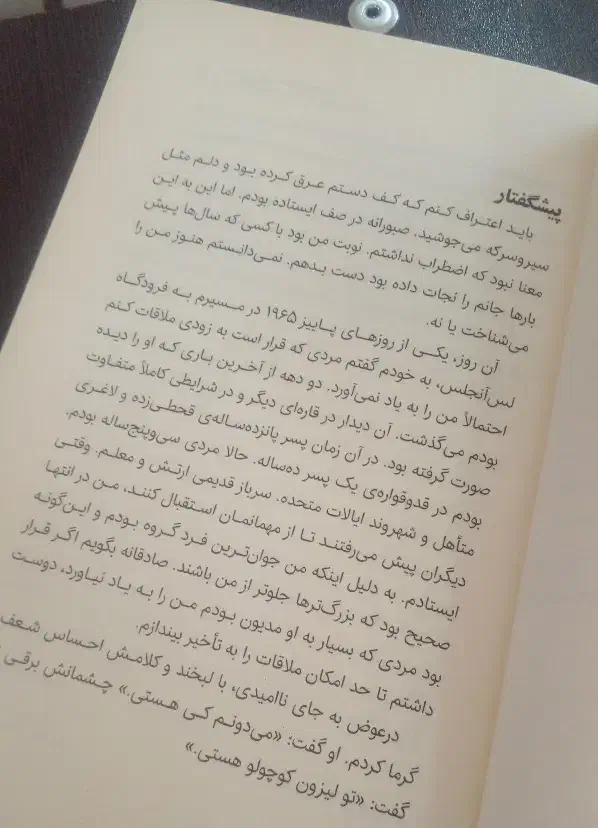 پیشگفتار
باید اعتراف کنم که کف دستم عرق کرده بود و دلم مثل
سیروسرکه می‌جوشید، صبورانه در صف ایستاده بودم. اما این به این
معنا نبود که اضطراب نداشتم. نوبت من بود با کسی که سال‌ها پیش
بارها جانم را نجات داده بود دست بدهم. نمی‌دانستم هنوز من را
می‌شناخت یا نه.
آن روز، یکی از روزهای پاییز ۱۹۶۵ در مسیرم به فرودگاه
لس‌آنجلس، به خودم گفتم مردی که قرار است به زودی ملاقات کنم
احتمالاً من را به یاد نمی‌آورد. دو دهه از آخرین باری که او را دیده
بودم می‌گذشت. آن دیدار در قاره‌ای دیگر و در شرایطی کاملاً متفاوت
صورت گرفته بود. در آن زمان پسر پانزده‌ساله‌ی قحطی‌زده و لاغری
بودم در قدوقواره‌ی یک پسر ده‌ساله. حالا مردی سی‌وپنج‌ساله بودم.
متأهل و شهروند ایالات متحده. سرباز قدیمی ارتش و معلم. وقتی
دیگران پیش می‌رفتند تا از مهمانمان استقبال کنند، من در انتها
ایستادم. به دلیل اینکه من جوان‌ترین فرد گروه بودم و این‌گونه
صحیح بود که بزرگ‌ترها جلوتر از من باشند. صادقانه بگویم اگر قرار
بود مردی که بسیار به او مدیون بودم من را به یاد نیاورد، دوست
داشتم تا حد امکان ملاقات را به تأخیر بیندازم.
درعوض به جای ناامیدی، با لبخند و کلامش احساس شعف
گرما کردم. او گفت: «می‌دونم کی هستی.» چشمانش برقی
گفت: «تو لیزون کوچولو هستی.»